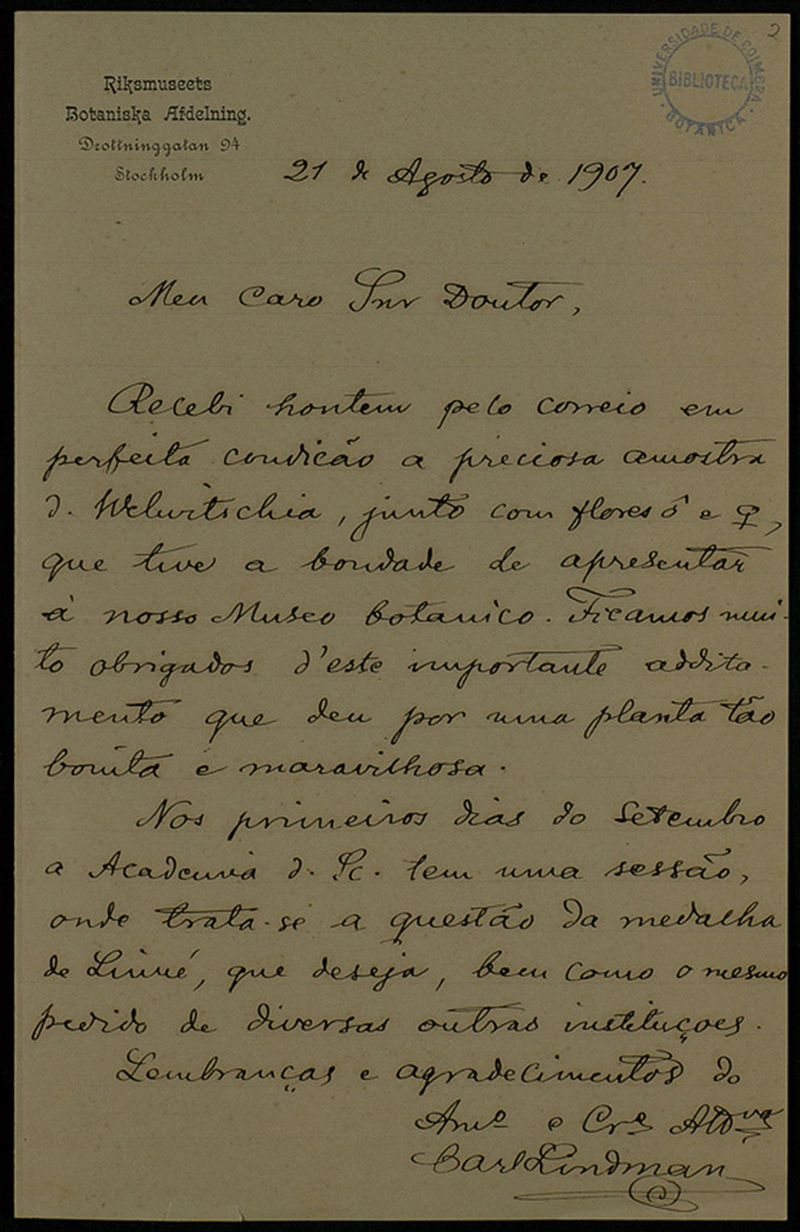 2
UNIVERSIDADE DE COIMBRA
BIBLIOTECA
BOTANICA
Riksmuseets
Botaniska Afdelning.
Drottninggatan 94
Stockholm
21 de Agosto de 1907.
Meu caro Snr Doutor,
Recebi hontem pelo correio em
perfeita condicão a preciosa amostra
d. Welwitschia, junto com flores ♂ e ♀,
que tive a bondade de apresentar
á nosso Museo botanico. Ficamos mui-
to obrigados d'este importante addita-
mento que deu por uma planta tão
bonita e maravilhosa.
Nos primeiros dias do Setembro
a Academia d. Sc. tem uma sessão,
onde trata-se a questão da medalha
de Linné, que deseja, bem como o mesmo
pedido de diversas outras instituçoes.
Lembranças e agradecimentos do
Amº e Crº
Carl Lindman